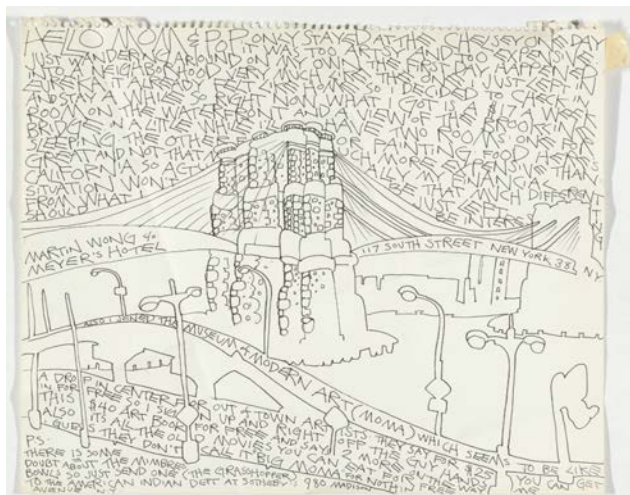 HELLO MOM & POP ONLY STAYED AT THE CHELSEY ONE DAY
IT WAS TOO ARTY AND TOO EXPENSIVE
JUST WANDERING AROUND ON MY OWN THE FIRST
INTO A NEIGHBORHOOD VERY MUCH LIKE THE ONE I JUST LEFT IN
EUREKA SO I DECIDED TO CHECK IN
AND STAY A WHILE SO RIGHT NOW WHAT I GOT IS A $17 A WEEK
ROOM ON THE WATERFRONT AND A VIEW OF THE BROOKLYN
BRIDGE IN A TWO ROOMS ONE FOR
SLEEPING THE OTHER FOR PAINTING FOOD HERE IS
GREAT AND NOT THAT MUCH MORE EXPENSIVE THAN
CALIFORNIA SO ACTUALLY MY FINANCIAL
SITUATION WONT BE THAT MUCH DIFFERENT
FROM WHAT I JUST LEFT
SHOULD BE INTERESTING
MARTIN WONG 40
MEYER'S HOTEL
117 SOUTH STREET NEW YORK 38, NY
ALSO I JOINED THE MUSEUM of MODERN ART (MOMA) WHICH SEEMS TO BE LIKE
A DROP IN CENTER FOR OUT of TOWN ARTISTS. THEY SAY FOR $25 YOU CAN GET
IN FOR FREE SO I SIGNED UP AND RIGHT OFF THE GUY HANDS ME
THIS $40 ART BOOK FOR FREE AND SAYS 2 MORE
ALSO ITS ALL THE OLD MOVIES YOU CAN EAT FOR NOTHIN
GUESS THEY DON'T CALL IT BIG MOMA FOR NOTH IN FREE WAY
P.S.
THERE IS SOME
DOUBT ABOUT THE MIMBRES
BOWLS SO JUST SEND ONE (THE GRASSHOPPER)
TO THE AMERICAN INDIAN DEPT AT SOTHEBY 980 MADISON
AVENUE NY